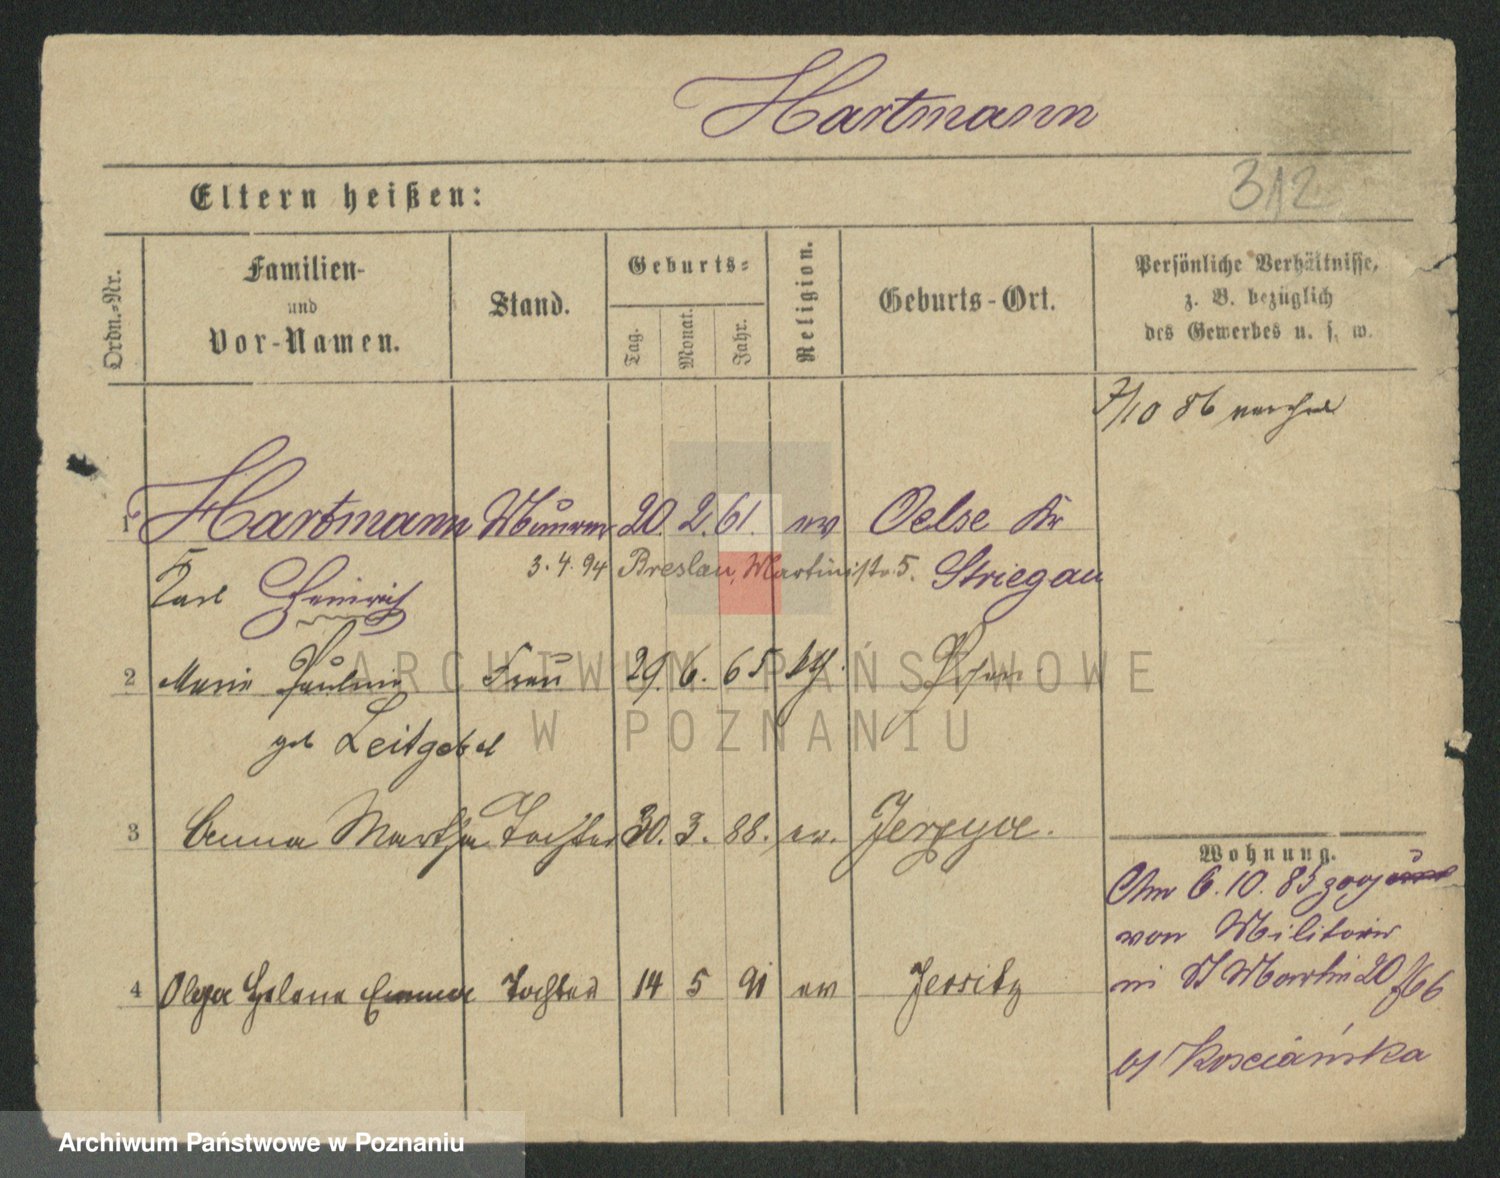 Hartmann
312
Eltern heißen:
Ordn.-Nr.
Familien-
und
Vor-Namen.
Stand.
Geburts-
Tag.
Monat.
Jahr.
Religion.
Geburts-Ort.
Persönliche Verhältnisse,
z. B. bezüglich
des Gewerbes u. s. w.
7/10 86
1 Hartmann Maurer 20. 2. 61. ev Oelse Kr
3. 4. 94 Breslau, Martinistr. 5. Striegau
Karl Heinrich
2 Marie Pauline Frau 29. 6. 65 kth. Posen
geb Leitgebel
3 Anna Martha Tochter 30. 3. 88. ev. Jerzyce.
4 Olga Helene Emma Tochter 14 5 91 ev Jersitz
Wohnung.
Am 6. 10. 85 zog
von Militair
in St Martin 20/66
b/ Kosciańska
ARCHIWUM PAŃSTWOWE
W POZNANIU
Archiwum Państwowe w Poznaniu